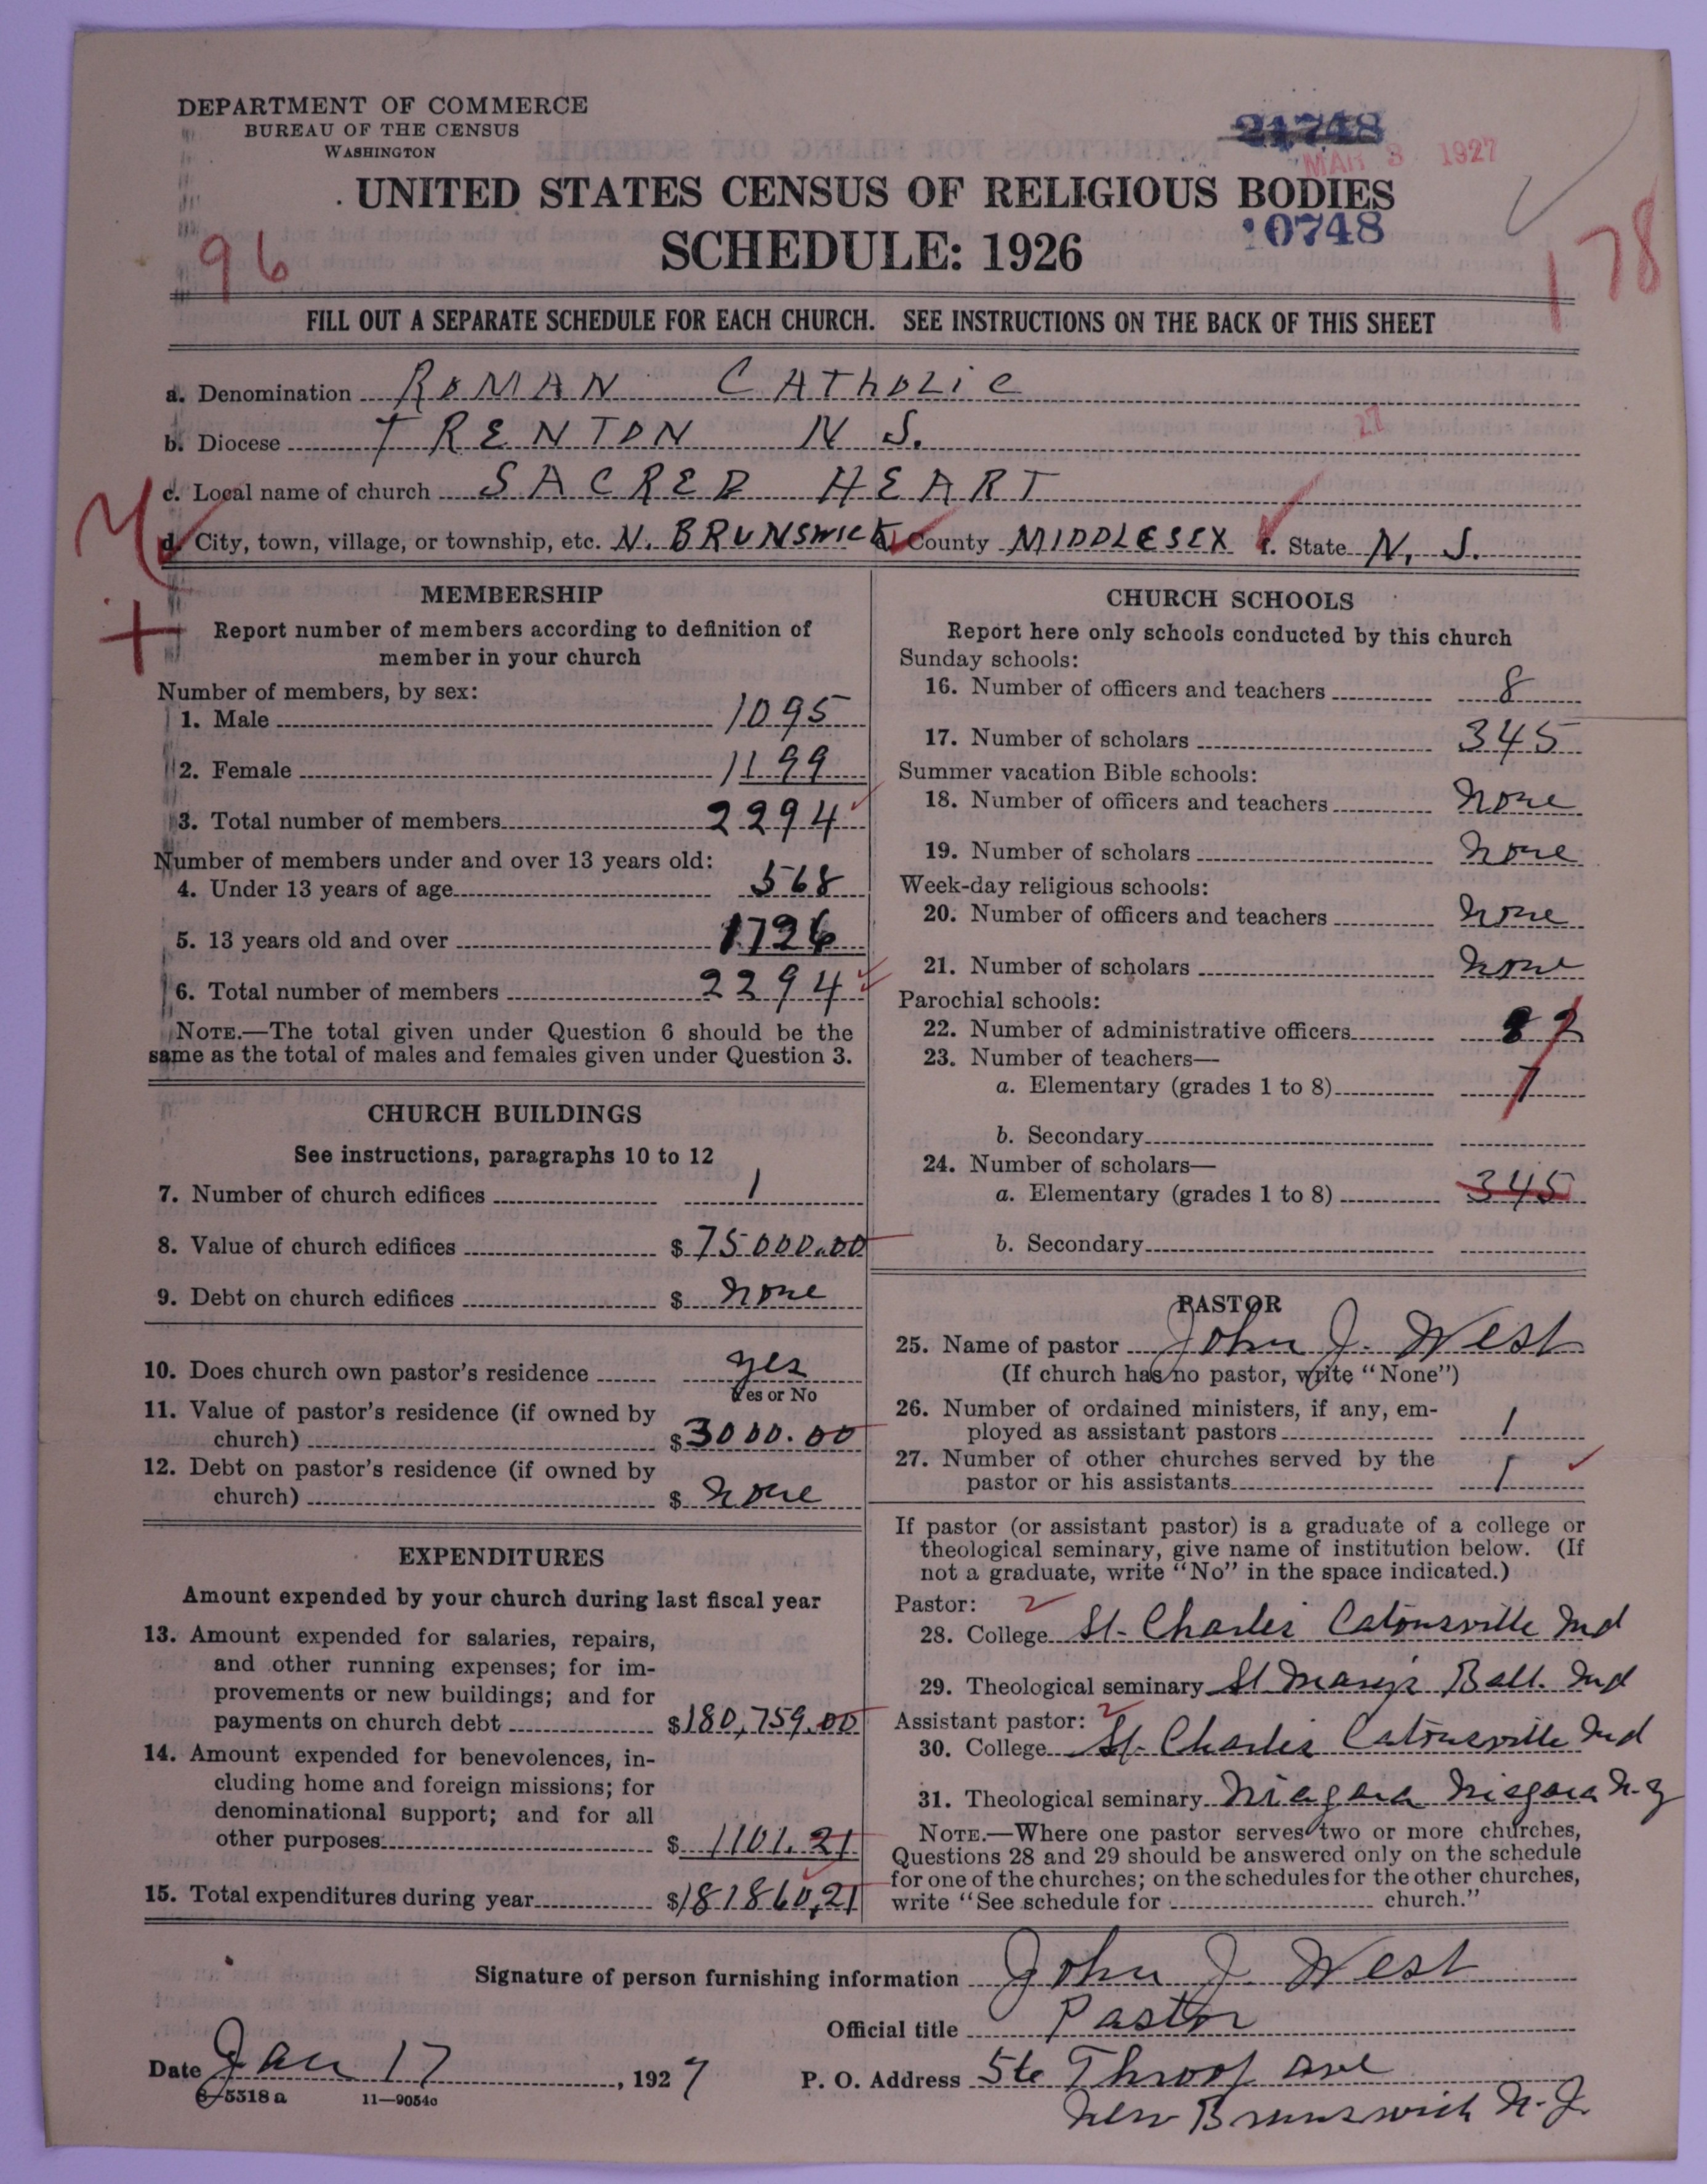 DEPARTMENT OF COMMERCE
BUREAU OF THE CENSUS
WASHINGTON
21748
MAR 3 1927
UNITED STATES CENSUS OF RELIGIOUS BODIES
0748
SCHEDULE: 1926
96
178
FILL OUT A SEPARATE SCHEDULE FOR EACH CHURCH. SEE INSTRUCTIONS ON THE BACK OF THIS SHEET
a. Denomination ROMAN CATHOLIC
27
b. Diocese TRENTON N J.
c. Local name of church SACRED HEART
d. City, town, village, or township, etc. N. BRUNSWICK County MIDDLESEX f. State N. J.
MEMBERSHIP
Report number of members according to definition of
member in your church
Number of members, by sex:
1. Male 1095
2. Female 1199
3. Total number of members 2294
Number of members under and over 13 years old:
4. Under 13 years of age 568
5. 13 years old and over 1726
6. Total number of members 2294
NOTE.—The total given under Question 6 should be the
same as the total of males and females given under Question 3.
CHURCH BUILDINGS
See instructions, paragraphs 10 to 12
7. Number of church edifices 1
8. Value of church edifices $ 75000.00
9. Debt on church edifices $ none
10. Does church own pastor's residence yes
Yes or No
11. Value of pastor's residence (if owned by
church) $3000.00
12. Debt on pastor's residence (if owned by
church) $ none
EXPENDITURES
Amount expended by your church during last fiscal year
13. Amount expended for salaries, repairs,
and other running expenses; for im-
provements or new buildings; and for
payments on church debt $180,759.00
14. Amount expended for benevolences, in-
cluding home and foreign missions; for
denominational support; and for all
other purposes $ 1101.21
15. Total expenditures during year $181860,21
CHURCH SCHOOLS
Report here only schools conducted by this church
Sunday schools:
16. Number of officers and teachers 8
17. Number of scholars 345
Summer vacation Bible schools:
18. Number of officers and teachers none
19. Number of scholars none
Week-day religious schools:
20. Number of officers and teachers none
21. Number of scholars none
Parochial schools:
22. Number of administrative officers
23. Number of teachers—
a. Elementary (grades 1 to 8) 7
b. Secondary
24. Number of scholars—
a. Elementary (grades 1 to 8) 345
b. Secondary
PASTOR
25. Name of pastor John J. West
(If church has no pastor, write "None")
26. Number of ordained ministers, if any, em-
ployed as assistant pastors 1
27. Number of other churches served by the
pastor or his assistants 1
If pastor (or assistant pastor) is a graduate of a college or
theological seminary, give name of institution below. (If
not a graduate, write "No" in the space indicated.)
Pastor: 2
28. College St. Charles Catonsville Md
29. Theological seminary St Marys Balt. Md
Assistant pastor: 2
30. College St. Charles Catonsville Md
31. Theological seminary Niagara Niagara N.Y
NOTE.—Where one pastor serves two or more churches,
Questions 28 and 29 should be answered only on the schedule
for one of the churches; on the schedules for the other churches,
write "See schedule for church."
Signature of person furnishing information John J West
Official title Pastor
Date Jan 17, 1927
P. O. Address 56 Throop ave
New Brunswick N.J.
8-5518a 11-9054c